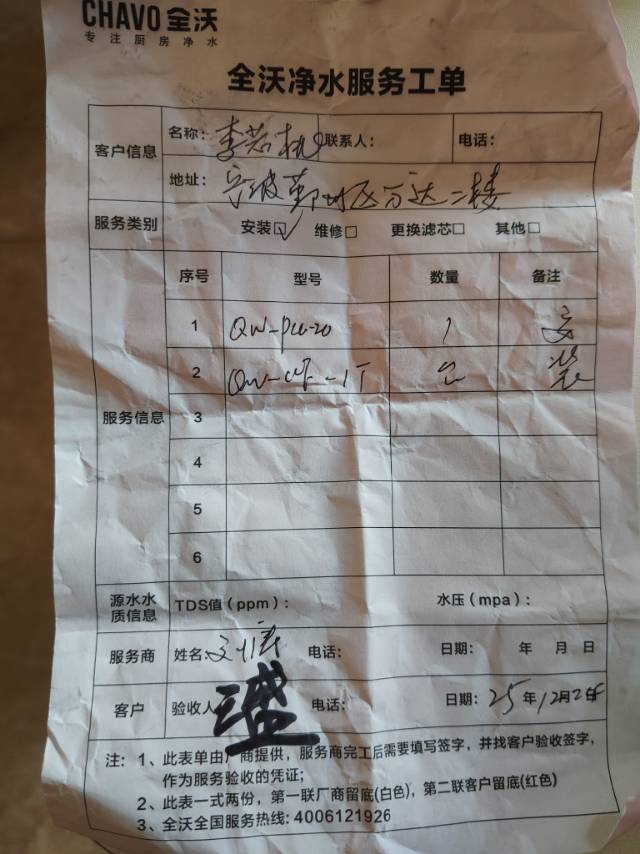 CHAVO 全沃
专注厨房净水
全沃净水服务工单
客户信息 名称： 李若 联系人： 电话：
地址： 宁波鄞州区万达二楼
服务类别 安装☑ 维修□ 更换滤芯□ 其他□
服务信息 序号 型号 数量 备注
1 QW-PU-20 1 安
2 台 装
3
4
5
6
源水水质信息 TDS值（ppm）： 水压（mpa）：
服务商 姓名： 电话： 日期： 年 月 日
客户 验收人 三盛 电话： 日期：25年12月2
注：1、此表单由厂商提供，服务商完工后需要填写签字，并找客户验收签字，
作为服务验收的凭证；
2、此表一式两份，第一联厂商留底(白色)，第二联客户留底(红色)
3、全沃全国服务热线: 4006121926